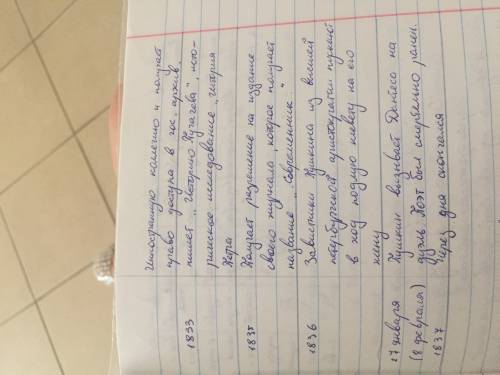 иностранную коллегию и получает
право доступа в гос. архив.
1833 пишет „Историю Пугачева", исто-
рическое исследование „История
Петра
1835 Получает разрешение на издание
своего журнала, которое получает
название „Современник"
1836 Завистники Пушкина из высшей
петербургской аристократии пускают
в ход подлую клевету на его
жену
17 января Пушкин вызывает Дантеса на
(8 февраля) дуэль. Поэт был смертельно ранен.
1837 Через два скончался